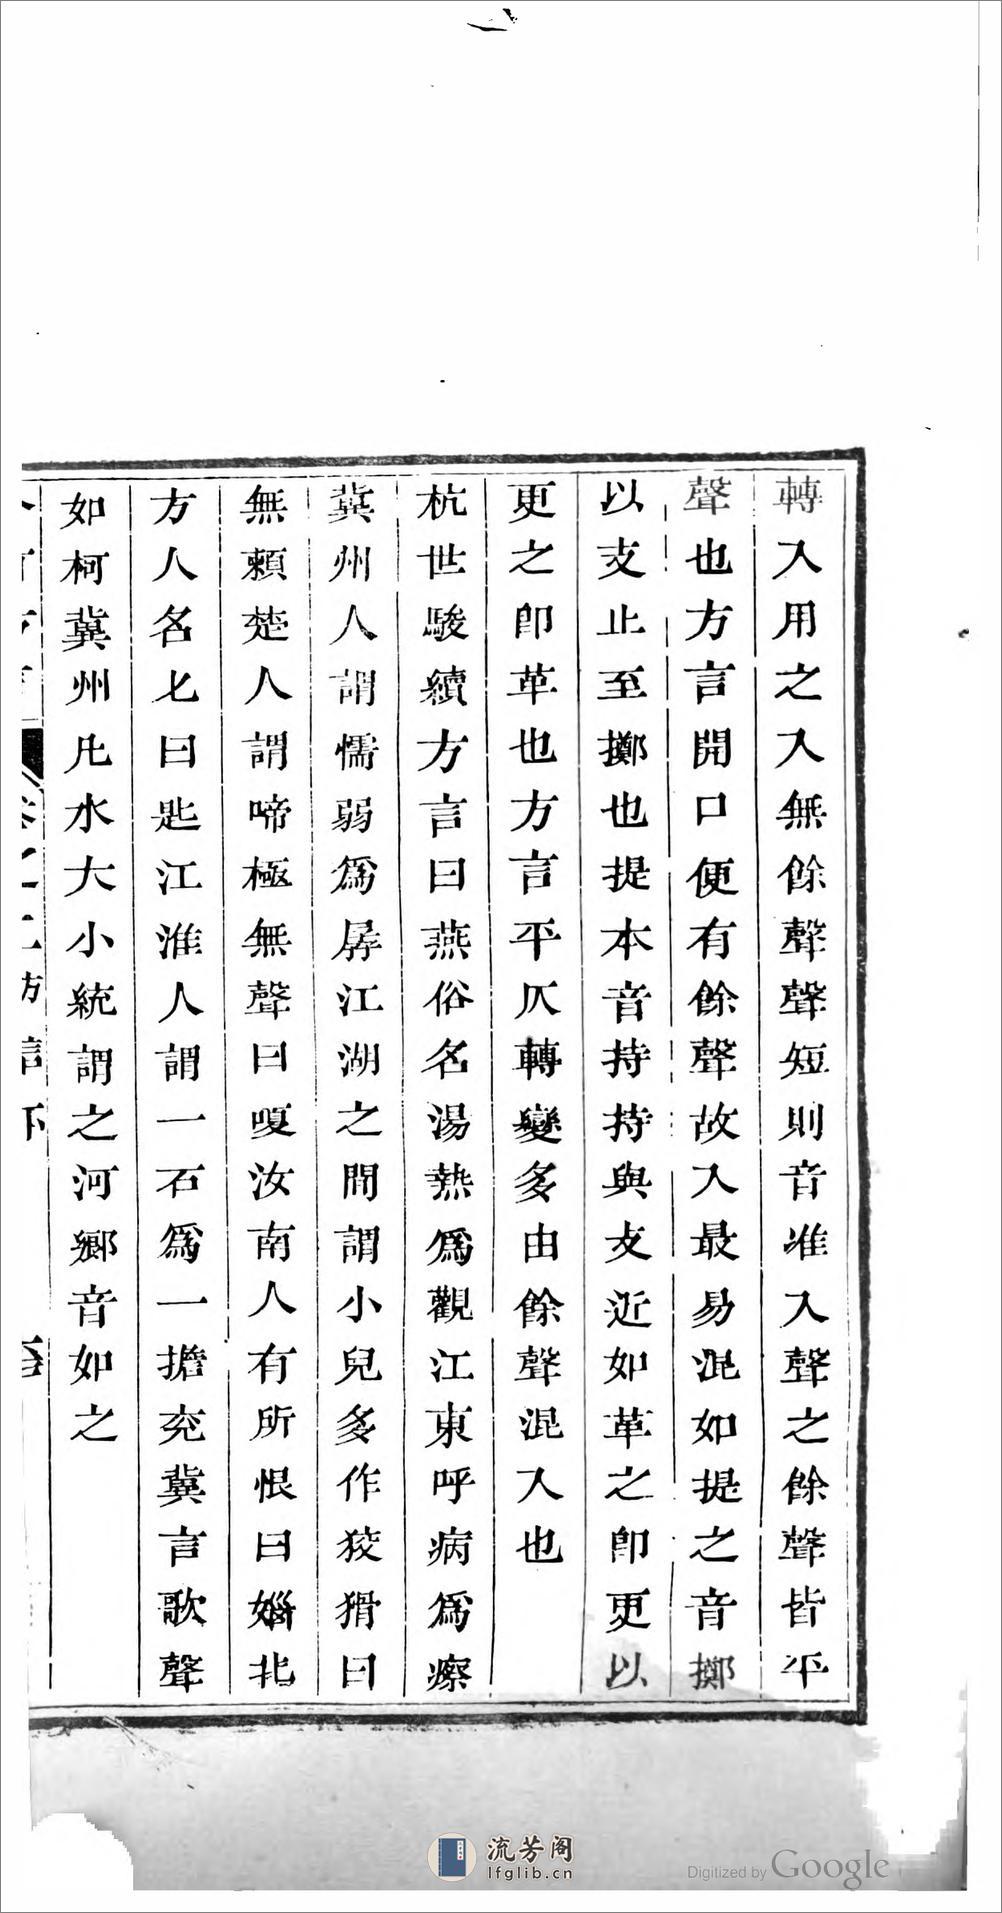 轉入用之入無餘聲聲短則音准入聲之餘聲皆平
聲也方言開口便有餘聲故入最易混如提之音擲
以支止至擲也提本音持持與支近如革之卽更以
更之卽革也方言平仄轉變多由餘聲混入也
杭世駿續方言曰燕俗名湯熱爲觀江東呼病爲瘵
冀州人謂懦弱爲孱江湖之間謂小兒多作狡猾曰
無賴楚人謂啼極無聲曰嗄汝南人有所恨曰㛴北
方人名匕曰匙江淮人謂一石爲一擔兖冀言歌聲
如柯冀州凡水大小統謂之河鄉音如之
卷之二方言下
流芳阁
lfglib.cn
Digitized by Google